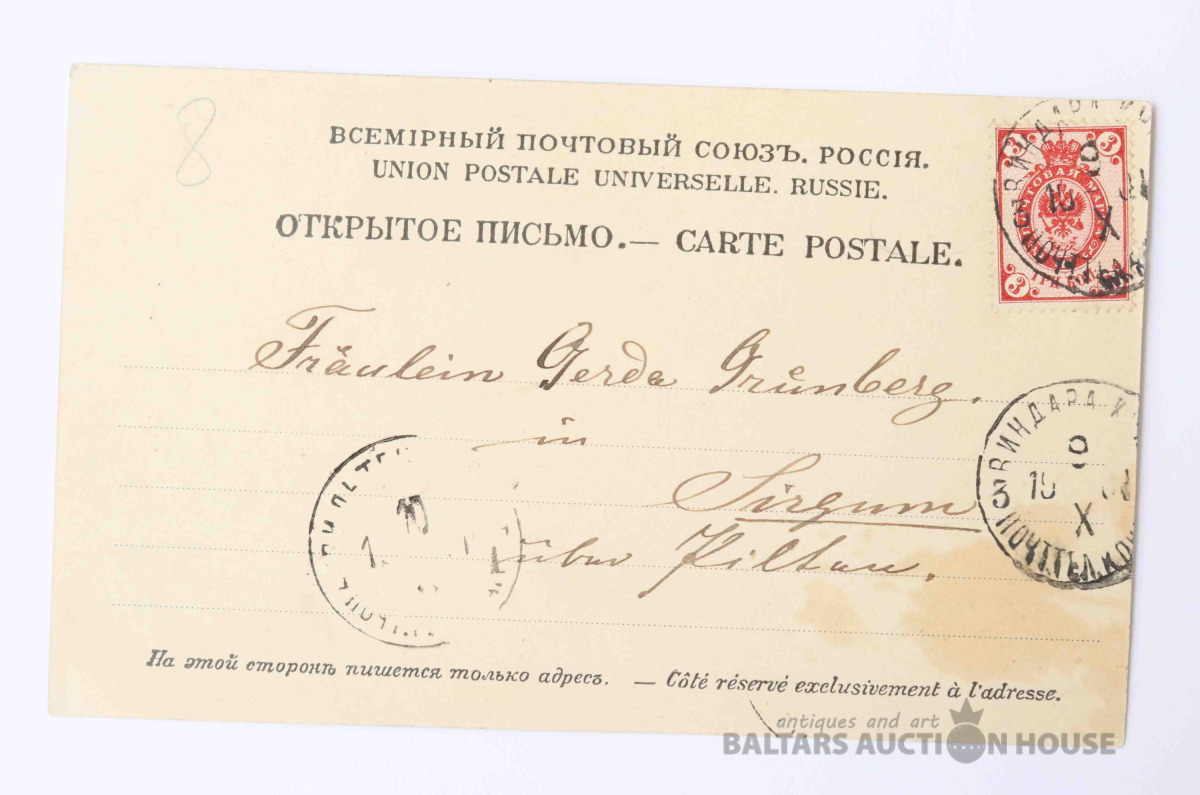 8
ВСЕМІРНЫЙ ПОЧТОВЫЙ СОЮЗЪ. РОССІЯ.
UNION POSTALE UNIVERSELLE. RUSSIE.
ОТКРЫТОЕ ПИСЬМО.— CARTE POSTALE.
3 3
3
Fräulein Gerda Grünberg.
in
Sirgum
über Piltau.
ВИНДАВА
9
X
На этой сторонѣ пишется только адресъ. — Côté réservé exclusivement à l'adresse.
antiques and art
BALTARS AUCTION HOUSE